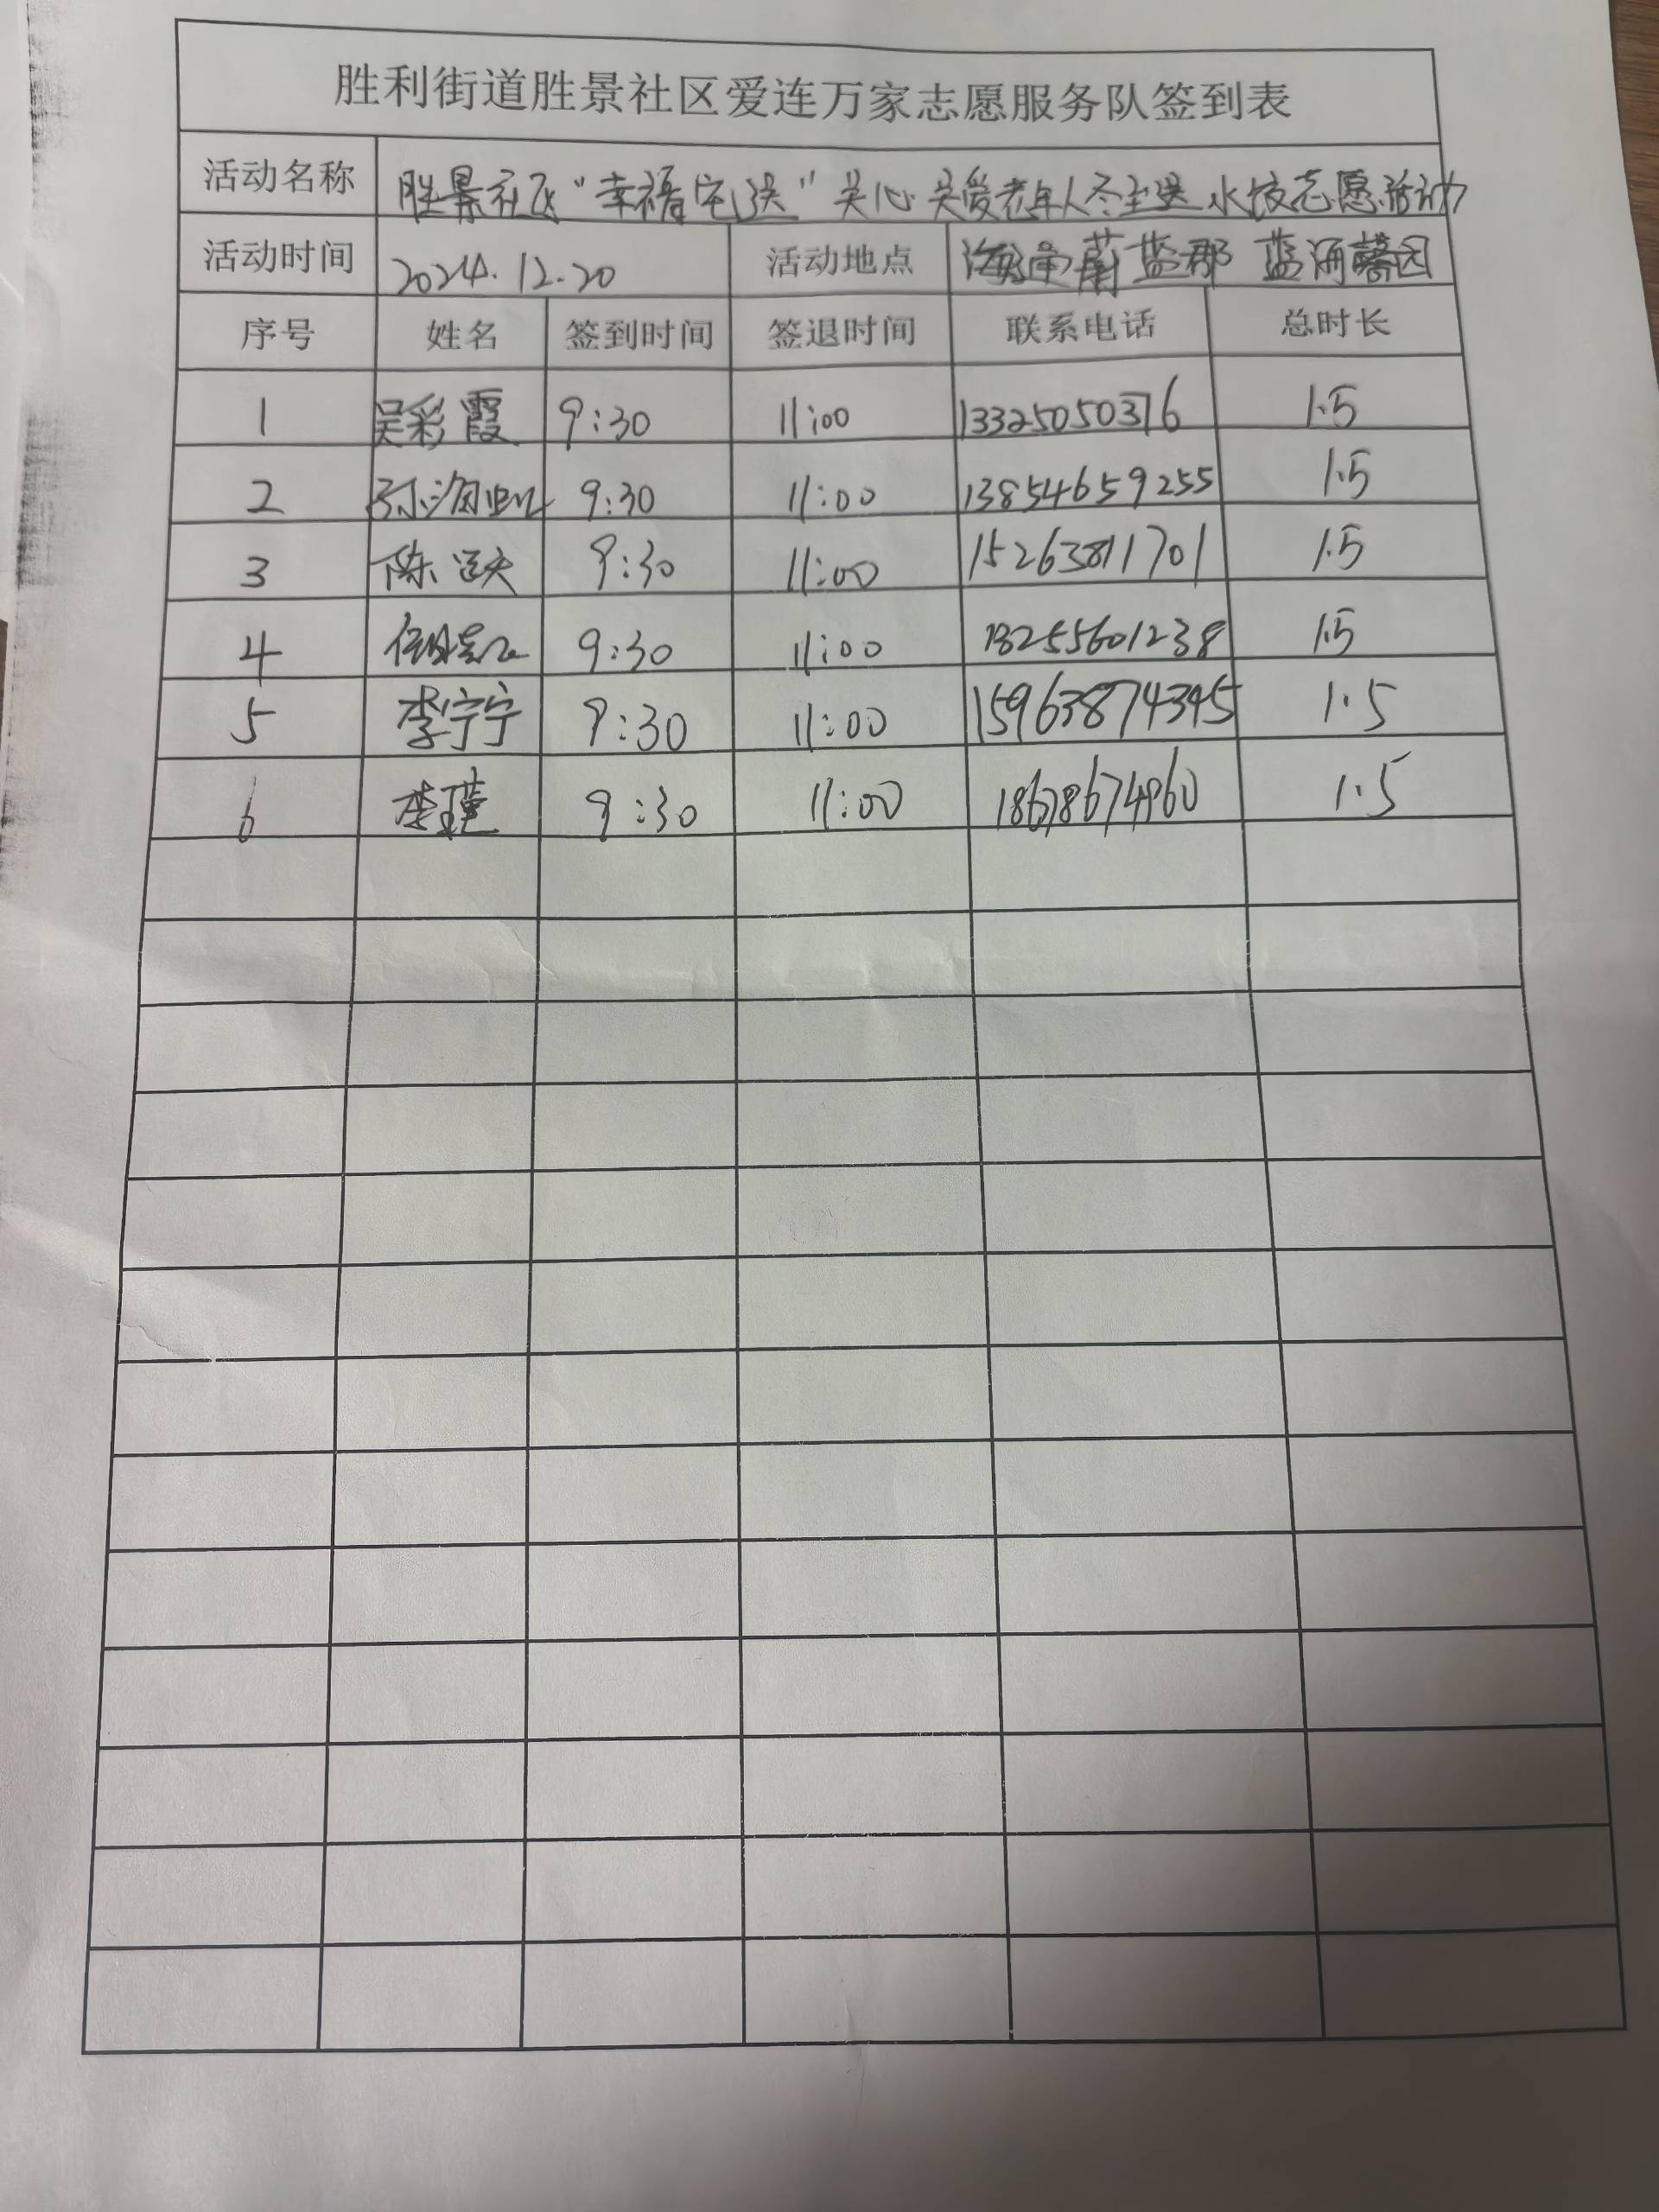 胜利街道胜景社区爱连万家志愿服务队签到表
活动名称 胜景社区“幸福宅送”关心关爱老年人冬至送水饺志愿活动
活动时间 2024.12.20 活动地点 蔚蓝郡 蓝海馨园
序号 姓名 签到时间 签退时间 联系电话 总时长
1 吴彩霞 9:30 11:00 13325050376 1.5
2 9:30 11:00 13854659255 1.5
3 陈 9:30 11:00 15263811701 1.5
4 9:30 11:00 13255601238 1.5
5 李宁宁 9:30 11:00 15963874345 1.5
6 李瑾 9:30 11:00 18678674960 1.5